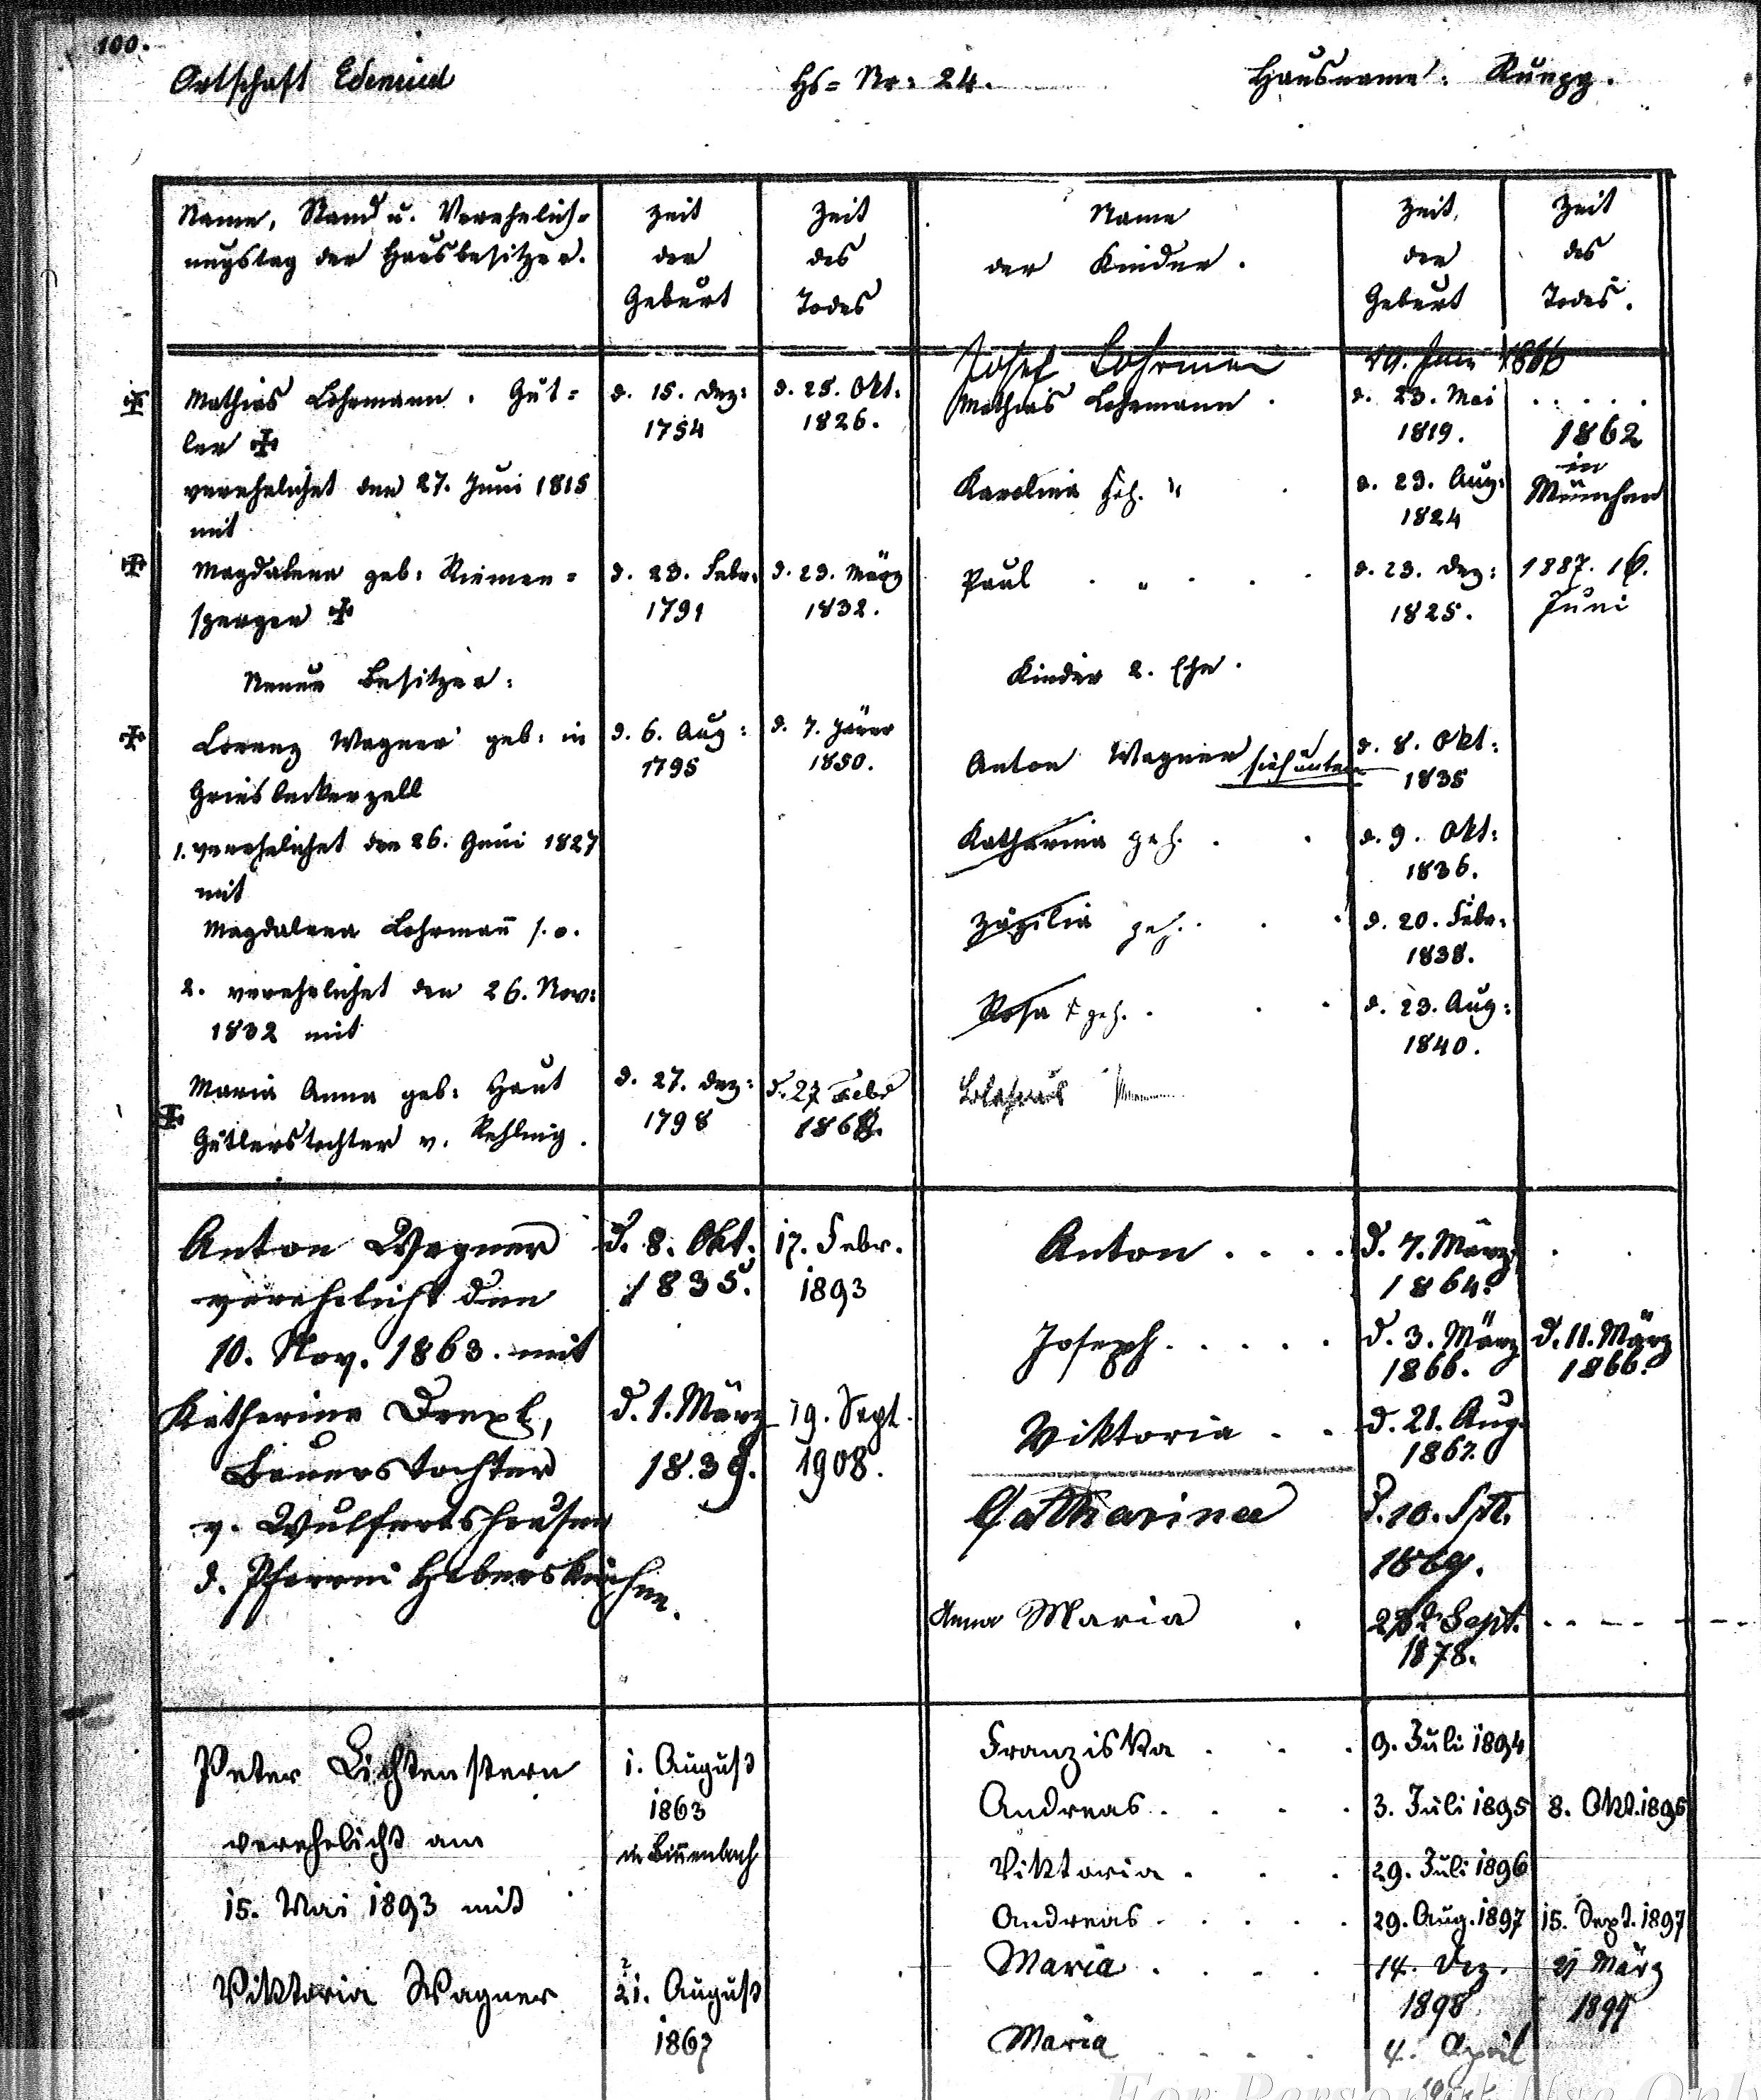 100.
Ortschaft Edenried Hs= Nr: 24. Hausname: Rupp.
Name, Stand u. Verehelich=
ungstag der Hausbesitzer.
Zeit
der
Geburt
Zeit
des
Todes
Name
der Kinder.
Zeit
der
Geburt
Zeit
des
Todes.
Mathias Lohrmann. Güt=
ler
d. 15. Dez:
1754
d. 25. Okt.
1826.
verehelichet den 27. Juni 1815
mit
Magdalena geb: Riemen=
sperger
d. 23. Febr.
1791
d. 23. März
1832.
Neuer Besitzer:
Lorenz Wagner geb: in
Griesbeckerzell
d. 6. Aug:
1795
d. 7. Jäner
1850.
1. verehelichet den 26. Juni 1827
mit
Magdalena Lohrmañ s. o.
2. verehelichet den 26. Nov:
1832 mit
Maria Anna geb: Haut
Gütlerstochter v. Rehling.
d. 27. Dez:
1798
d. 27 Febr
Josef Lohrman 19. 1886
Mathias Lohrmann. d. 23. Mai
1819.
1862
in
München
Karolina geh. " d. 23. Aug:
1824
Paul " d. 23. Dez:
1825.
1887. 16.
Juni
Kinder 2. Ehe.
Anton Wagner sieh unten d. 8. Okt:
1835
Katharina geh. d. 9. Okt:
1836.
Zäzilia geh. d. 20. Febr.
1838.
Rosa geh. d. 23. Aug:
1840.
Anton Wagner
verehelicht den
10. Nov. 1863. mit
d. 8. Okt.
1835.
17. Febr.
1893
Katharina Drexl,
Bauerstochter
v. Wulfertshausen
d. Pfarrei Haberskirchen.
d. 1. März
1839.
19. Sept.
1908.
Anton.... d. 7. März
1864.
Joseph..... d. 3. März
1866.
d. 11. März
1866.
Viktoria.. d. 21. Aug.
1867.
Catharina d. 10. Spt.
1869.
Anna Maria Sept.
1878.
Peter Lichtenstern
verehelicht am
15. Mai 1893 mit
1. August
1863
in Binnenbach
Viktoria Wagner
21. August
1867
Franziska... 9. Juli 1894
Andreas... 3. Juli 1895 8. Okt. 1895
Viktoria... 29. Juli 1896
Andreas..... 29. Aug. 1897 15. Sept. 1897
Maria.... 14. Dez.
1898
21 März
1899
Maria.... 4. April
For Personal Use Only